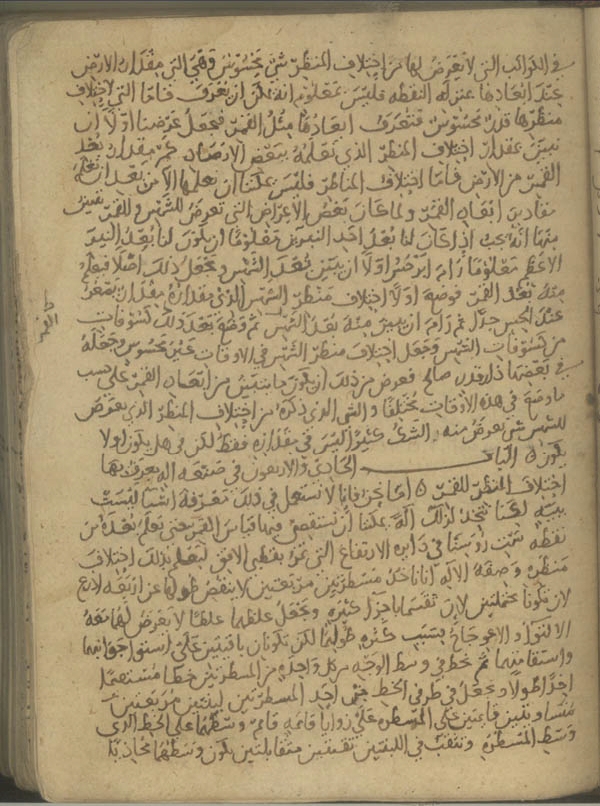 في الكواكب التي لا يعرض لها من اختلاف المنظر شي محسوس وهي التي مقدار الارض
عند ابعادها بمنزله النقطه فليس معلوم انه يمكن ان يعرف فاما التي لاختلاف
منظرها قدر محسوس فتعرف ابعادها مثل القمر فنجعل غرضنا اولا ان
نبين مقدار اختلاف المنظر الذي نعلمه ببعض الارصاد كم مقدار بعد
القمر من الارض فاما اختلاف المناظر فليس يمكننا ان نعلمها الا من بعد ان نعلم
مقادير ابعاد القمر ولما كان بعض الاعراض التي تعرض للشمس وللقمر يتبين
منها انه يجب اذا كان لنا بعد احد النيرين معلوما ان يكون لنا بعد النير
الاعظم معلوما رام ابرخس اولا ان يبين بعد الشمس ويجعل ذلك اصلا فيعلم
منه بعد القمر فوضع اولا لاختلاف منظر الشمس الذي مقداره مقدار يصغر
عند الحس جدا ثم رام ان يبين منه بعد الشمس ثم وضع بعد ذلك كسوفات
من كسوفات الشمس وجعل اختلاف منظر الشمس في الاوقات غير محسوس وجعله
في بعضها ذا قدر صالح فعرض من ذلك ان يكون ما يتبين من ابعاد القمر على حسب
ما وضع في هذه الاوقات مختلفا والشي الذي ذكره من اختلاف المنظر الذي يعرض
للشمس شي يعرض منه الشك كثيرا ليس في مقداره فقط لكن في هل يكون او لا
يكون الباب الحادي والاربعون في صنعه اله يعرف بها
اختلاف المنظر للقمر اما نحن فانا لا نستعمل في ذلك معرفة اشيا ليست
بينه لكنا نتخذ لذلك اله يمكننا ان نستقصي فيها قياس القمر حتى نعلم بعده من
نقطه سمت روسنا في دايره الارتفاع التي تمر بقطبي الافق ليعلم بذلك اختلاف
منظره وصفه الاله انا ناخذ مسطرتين مربعتين لا ينقص طولهما عن اربعه اذرع
لان تكونا محتملتين لان تقسما باجزا كثيره ونجعل غلظهما غلظا لا يعرض لهما معه
الالتوا والاعوجاج بسبب كثره طولهما لكن تكونان باقيتين على استوا جوانبهما
واستقامتهما ثم نخط في وسط الوجه من كل واحده من المسطرتين خطا مستقيما
اخذا طولا ونجعل في طرفي الخط في احد المسطرتين لبنتين مربعتين
متساويتين قايمتين على المسطره على زوايا قايمه قايمه وسطهما على الخط الذي
وسط المسطره ونثقب في اللبنتين ثقبتين متقابلتين يكون وسطهما محاذيا